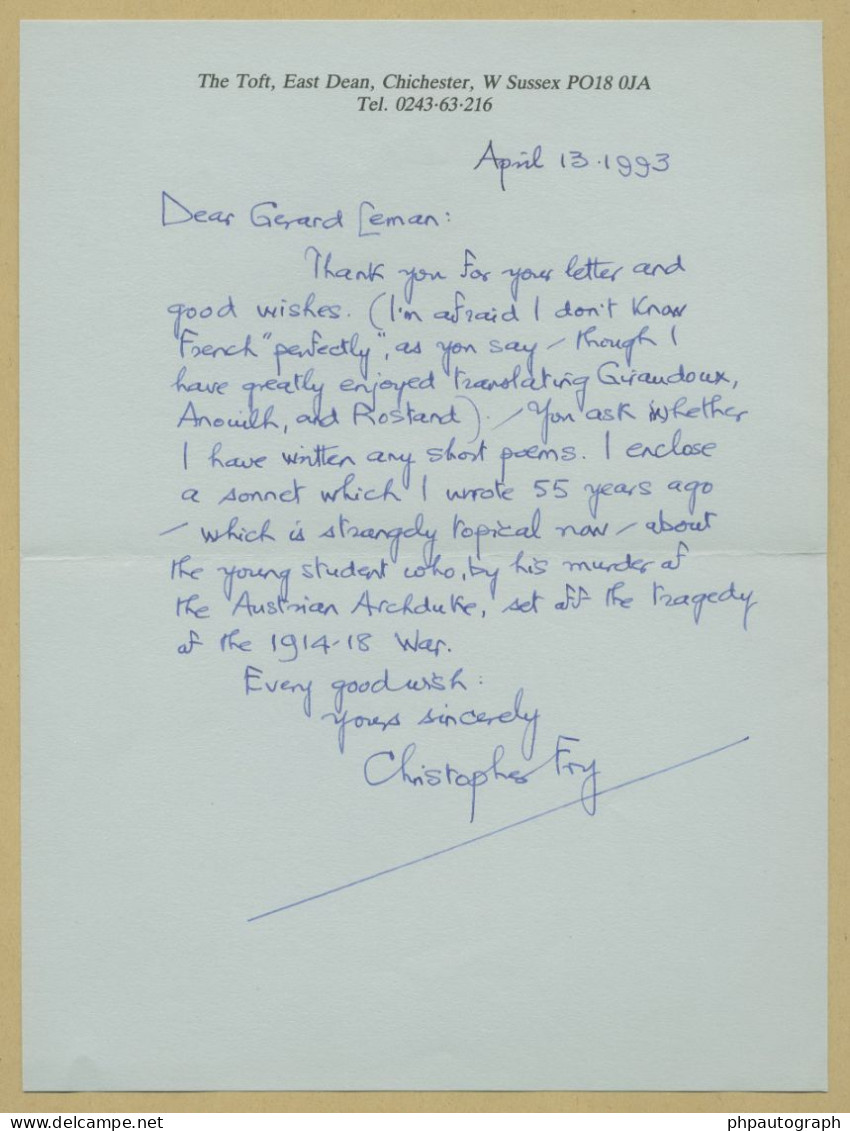 The Toft, East Dean, Chichester, W Sussex PO18 0JA
Tel. 0243·63·216
April 13.1993
Dear Gerard Leman:
Thank you for your letter and
good wishes. (I'm afraid I don't know
French "perfectly", as you say – though I
have greatly enjoyed translating Giraudoux,
Anouilh, and Rostand). – You ask whether
I have written any short poems. I enclose
a sonnet which I wrote 55 years ago
– which is strangely topical now – about
the young student who, by his murder of
the Austrian Archduke, set off the tragedy
of the 1914-18 War.
Every good wish:
Yours sincerely
Christopher Fry
delcampe.net
phpautograph